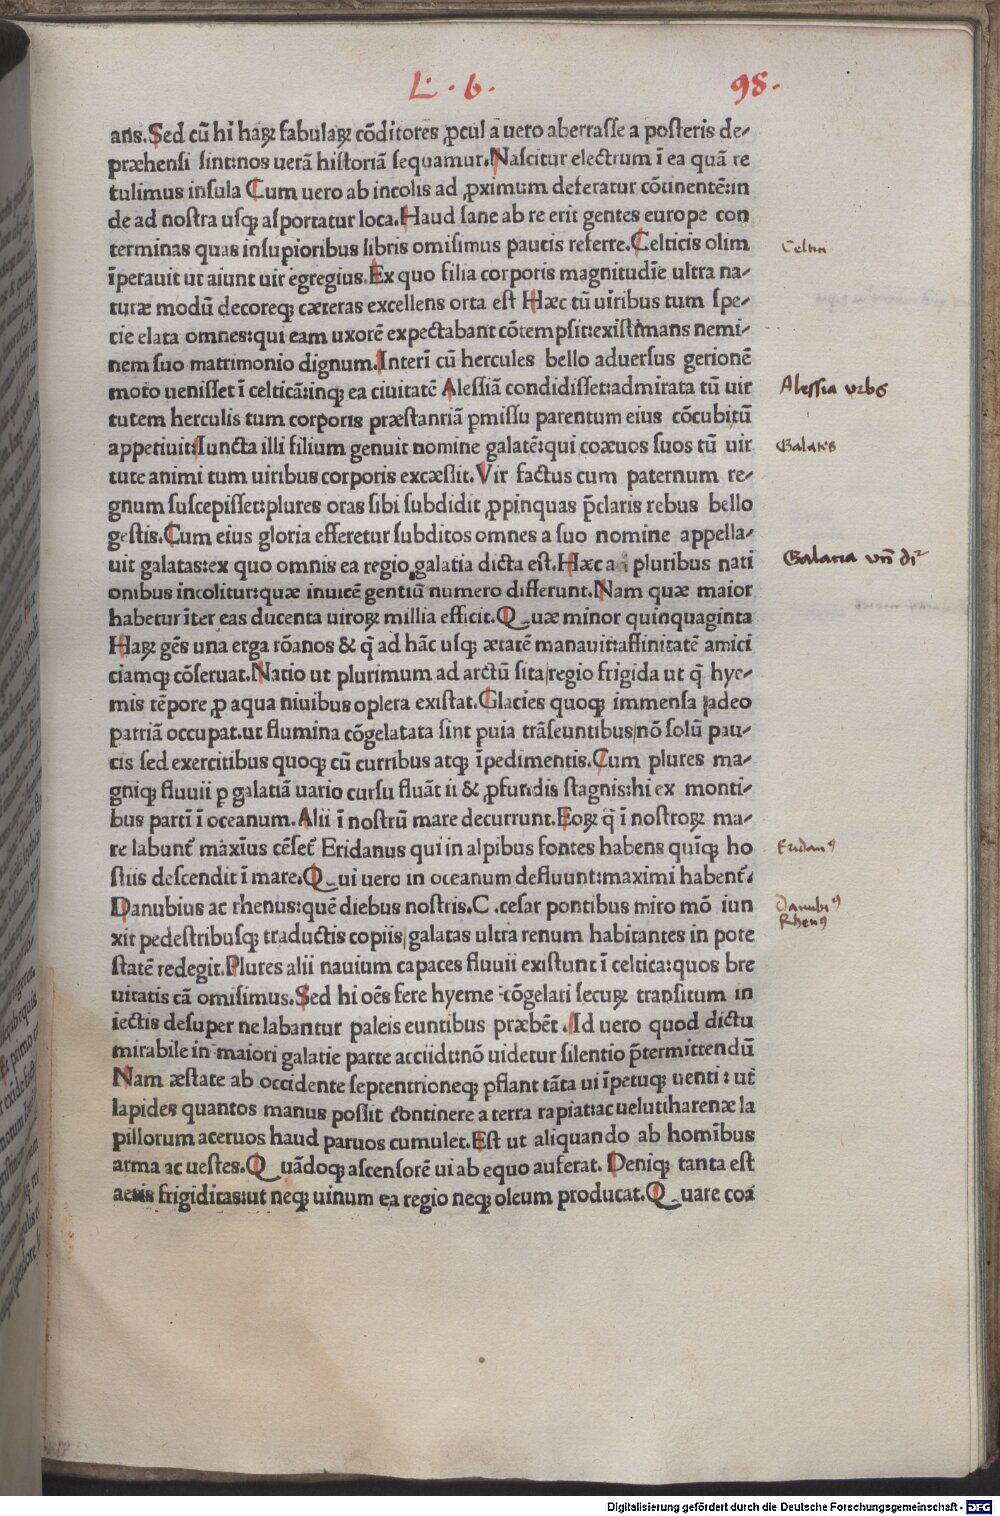 L. 6.
98.
ans.Sed cū hi haꝝ fabulaꝝ cōditores ꝓcul a uero aberrasse a posteris de-
præhensi sint:nos uerā historiā sequamur.Nascitur electrum ī ea quā re
tulimus insula Cum uero ab incolis ad ꝓximum deferatur cōtinentē:in
de ad nostra usq; asportatur loca.Haud sane ab re erit gentes europe con
terminas quas insupioribus libris omisimus paucis referre.Celticis olim
īperauit ut aiunt uir egregius.Ex quo filia corporis magnitudīe ultra na-
turæ modū decoreq; cæteras excellens orta est Hæc tū uiribus tum spe-
cie elata omnes:qui eam uxorē expectabant cōtempsit:existimans nemi-
nem suo matrimonio dignum.Interī cū hercules bello aduersus gerionē
moto uenisset ī celticā:inq; ea ciuitatē Alessiā condidisset:admirata tū uir
tutem herculis tum corporis præstantiā pmissu parentum eius cōcubitū
appetiuit:Iuncta illi filium genuit nomine galatē:qui coæuos suos tū uir
tute animi tum uiribus corporis excæssit.Vir factus cum paternum re-
gnum suscepisset:plures oras sibi subdidit ꝓpinquas p̄claris rebus bello
gestis.Cum eius gloria efferetur subditos omnes a suo nomine appella-
uit galatas:ex quo omnis ea regio galatia dicta est.Hæc a pluribus nati
onibus incolitur:quæ inuicē gentiū numero differunt.Nam quæ maior
habetur īter eas ducenta uiroꝝ millia efficit.Quæ minor quinquaginta
Haꝝ gēs una erga rōanos & q̄ ad hāc usq; ætatē manauit:affinitatē amici
ciamq; cōseruat.Natio ut plurimum ad arctū sita|regio frigida ut q̄ hye-
mis tēpore ꝓ aqua niuibus oplera existat.Glacies quoq; immensa |adeo
patriā occupat.ut flumina cōgelatata sint puia trāseuntibus|nō solū pau-
cis sed exercitibus quoq; cū curribus atq; īpedimentis.Cum plures ma-
gniq; fluuii p galatiā uario cursu fluāt ii & ꝓfundis stagnis:hi ex monti-
bus partī ī oceanum.Alii ī nostrū mare decurrunt.Eoꝝ q̄ ī nostroꝝ ma-
re labunt̄ maxīus cēset̄ Eridanus qui in alpibus fontes habens quīq; ho
stiis descendit ī mare.Qui uero in oceanum defluunt:maximi habent̄.
Danubius ac rhenus:quē diebus nostris.C.cesar pontibus miro mō iun
xit pedestribusq; traductis copiis|galatas ultra renum habitantes in pote
statē redegit.Plures alii nauium capaces fluuii existunt ī celtica:quos bre
uitatis cā omisimus.Sed hi oēs fere hyeme cōgelati secuꝝ transitum in
iectis desuper ne labantur paleis euntibus præbēt.Id uero quod dictu
mirabile in maiori galatie parte acciidt:nō uidetur silentio p̄termittendū
Nam æstate ab occidente septentrioneq; pflant tāta ui īpetuq; uenti:ut
lapides quantos manus possit continere a terra rapiat:ac ueluti harenæ la
pillorum aceruos haud paruos cumulet.Est ut aliquando ab homībus
arma ac uestes.Quādoq; ascensorē ui ab equo auferat.Deniq; tanta est
aeris frigiditas:ut neq; uinum ea regio neq; oleum producat.Quare coa
Alessia vrbs
Galates
Galatia vn̄ dr
Eridan9
Danubi9
Rhen9
Digitalisierung gefördert durch die Deutsche Forschungsgemeinschaft - DFG